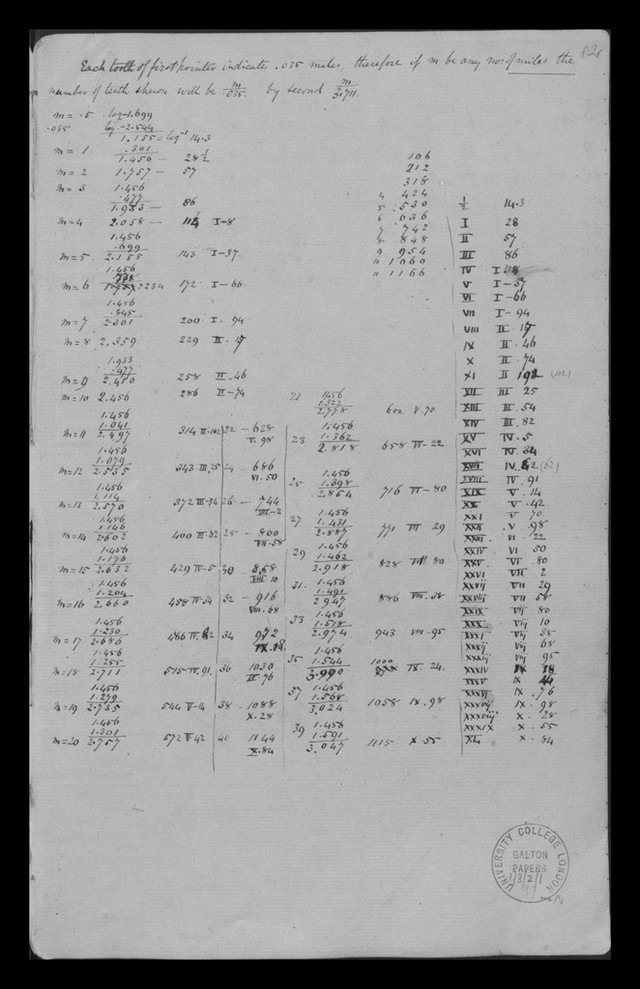 82r
Each tooth of first pointer indicates .035 miles, therefore if m be any no: of miles the
number of teeth shewn will be m/.035. by second m/3.711.
m = .5 log -1.699
.035 log -2.544
1.155 = log⁻¹ 14.3
m = 1 .301
1.456 — 28½
m = 2 1.757 — 57
m = 3 1.456
.477
1.933 — 86
m = 4 2.058 — 114 I-8
1.456
.699
m = 5 2.155 143 I-37
1.456
m = 6 2.234 172 I-66
1.456
.845
m = 7 2.301 200 I. 94
m = 8 2.359 229 II. 17
1.933
.477
m = 9 2.410 258 II-46
m = 10 2.456 286 II-74
1.456
1.041
m = 11 2.497 314 II.102
1.456
1.079
m = 12 2.535 343 III.25
1.456
1.114
m = 13 2.570 372 III-54
1.456
1.146
m = 14 2.602 400 III.82
1.456
1.176
m = 15 2.632 429 IV-5
1.456
1.204
m = 16 2.660 458 IV.34
1.456
1.230
m = 17 2.686 486 IV.62
1.456
1.255
m = 18 2.711 515 IV.91
1.456
1.279
m = 19 2.735 544 V-14
1.456
1.301
m = 20 2.757 572 V.42
22 - 628
V. 98
24 - 686
VI. 50
26 - 744
VII-2
28 - 800
VII-58
30 - 858
VIII. 10
32 - 916
VIII. 68
34 972
IX.18
36 1030
IX. 76
38 - 1088
X. 28
40 1144
X. 84
106
212
318
4 424
5 530
6 636
7 742
8 848
9 954
10 1060
11 1166
21 1.456
1.322
2.778 600 V. 70
23 1.456
1.362
2.818 658 VI-22
25 1.456
1.398
2.854 716 VI-80
27 1.456
1.431
2.887 771 VII 29
29 1.456
1.462
2.918 828 VII 80
31. 1.456
1.491
2.947 886 VIII.38
33 1.456
1.518
2.974 943 VIII-95
35 1.456
1.544
3.000 1000 IX. 24.
37 1.456
1.568
3.024 1058 IX. 98
39 1.456
1.591
3.047 1115 X. 55
½ 14.3
I 28
II 57
III 86
IV I 8
V I-37
VI I-66
VII I-94
VIII II. 17
IX II. 46
X II. 74
XI II 102 (102)
XII III 25
XIII III. 54
XIV III. 82
XV IV. 5
XVI IV. 34
XVII IV. 62 (62)
XVIII IV. 91
XIX V. 14
XX V. 42
XXI V 70.
XXII V. 98
XXIII VI. 22
XXIV VI 50
XXV VI. 80
XXVI VII 2
XXVII VII 29
XXVIII VII 58
XXIX VII 80
XXX VIII 10
XXXI VIII 38
XXXII VIII 68
XXXIII VIII 95
XXXIV IX 18
XXXV IX 44
XXXVI IX. 76
XXXVII IX. 98
XXXVIII X. 28
XXXIX X. 55
XL X. 84
UNIVERSITY COLLEGE LONDON
GALTON
PAPERS
1/3/2/1